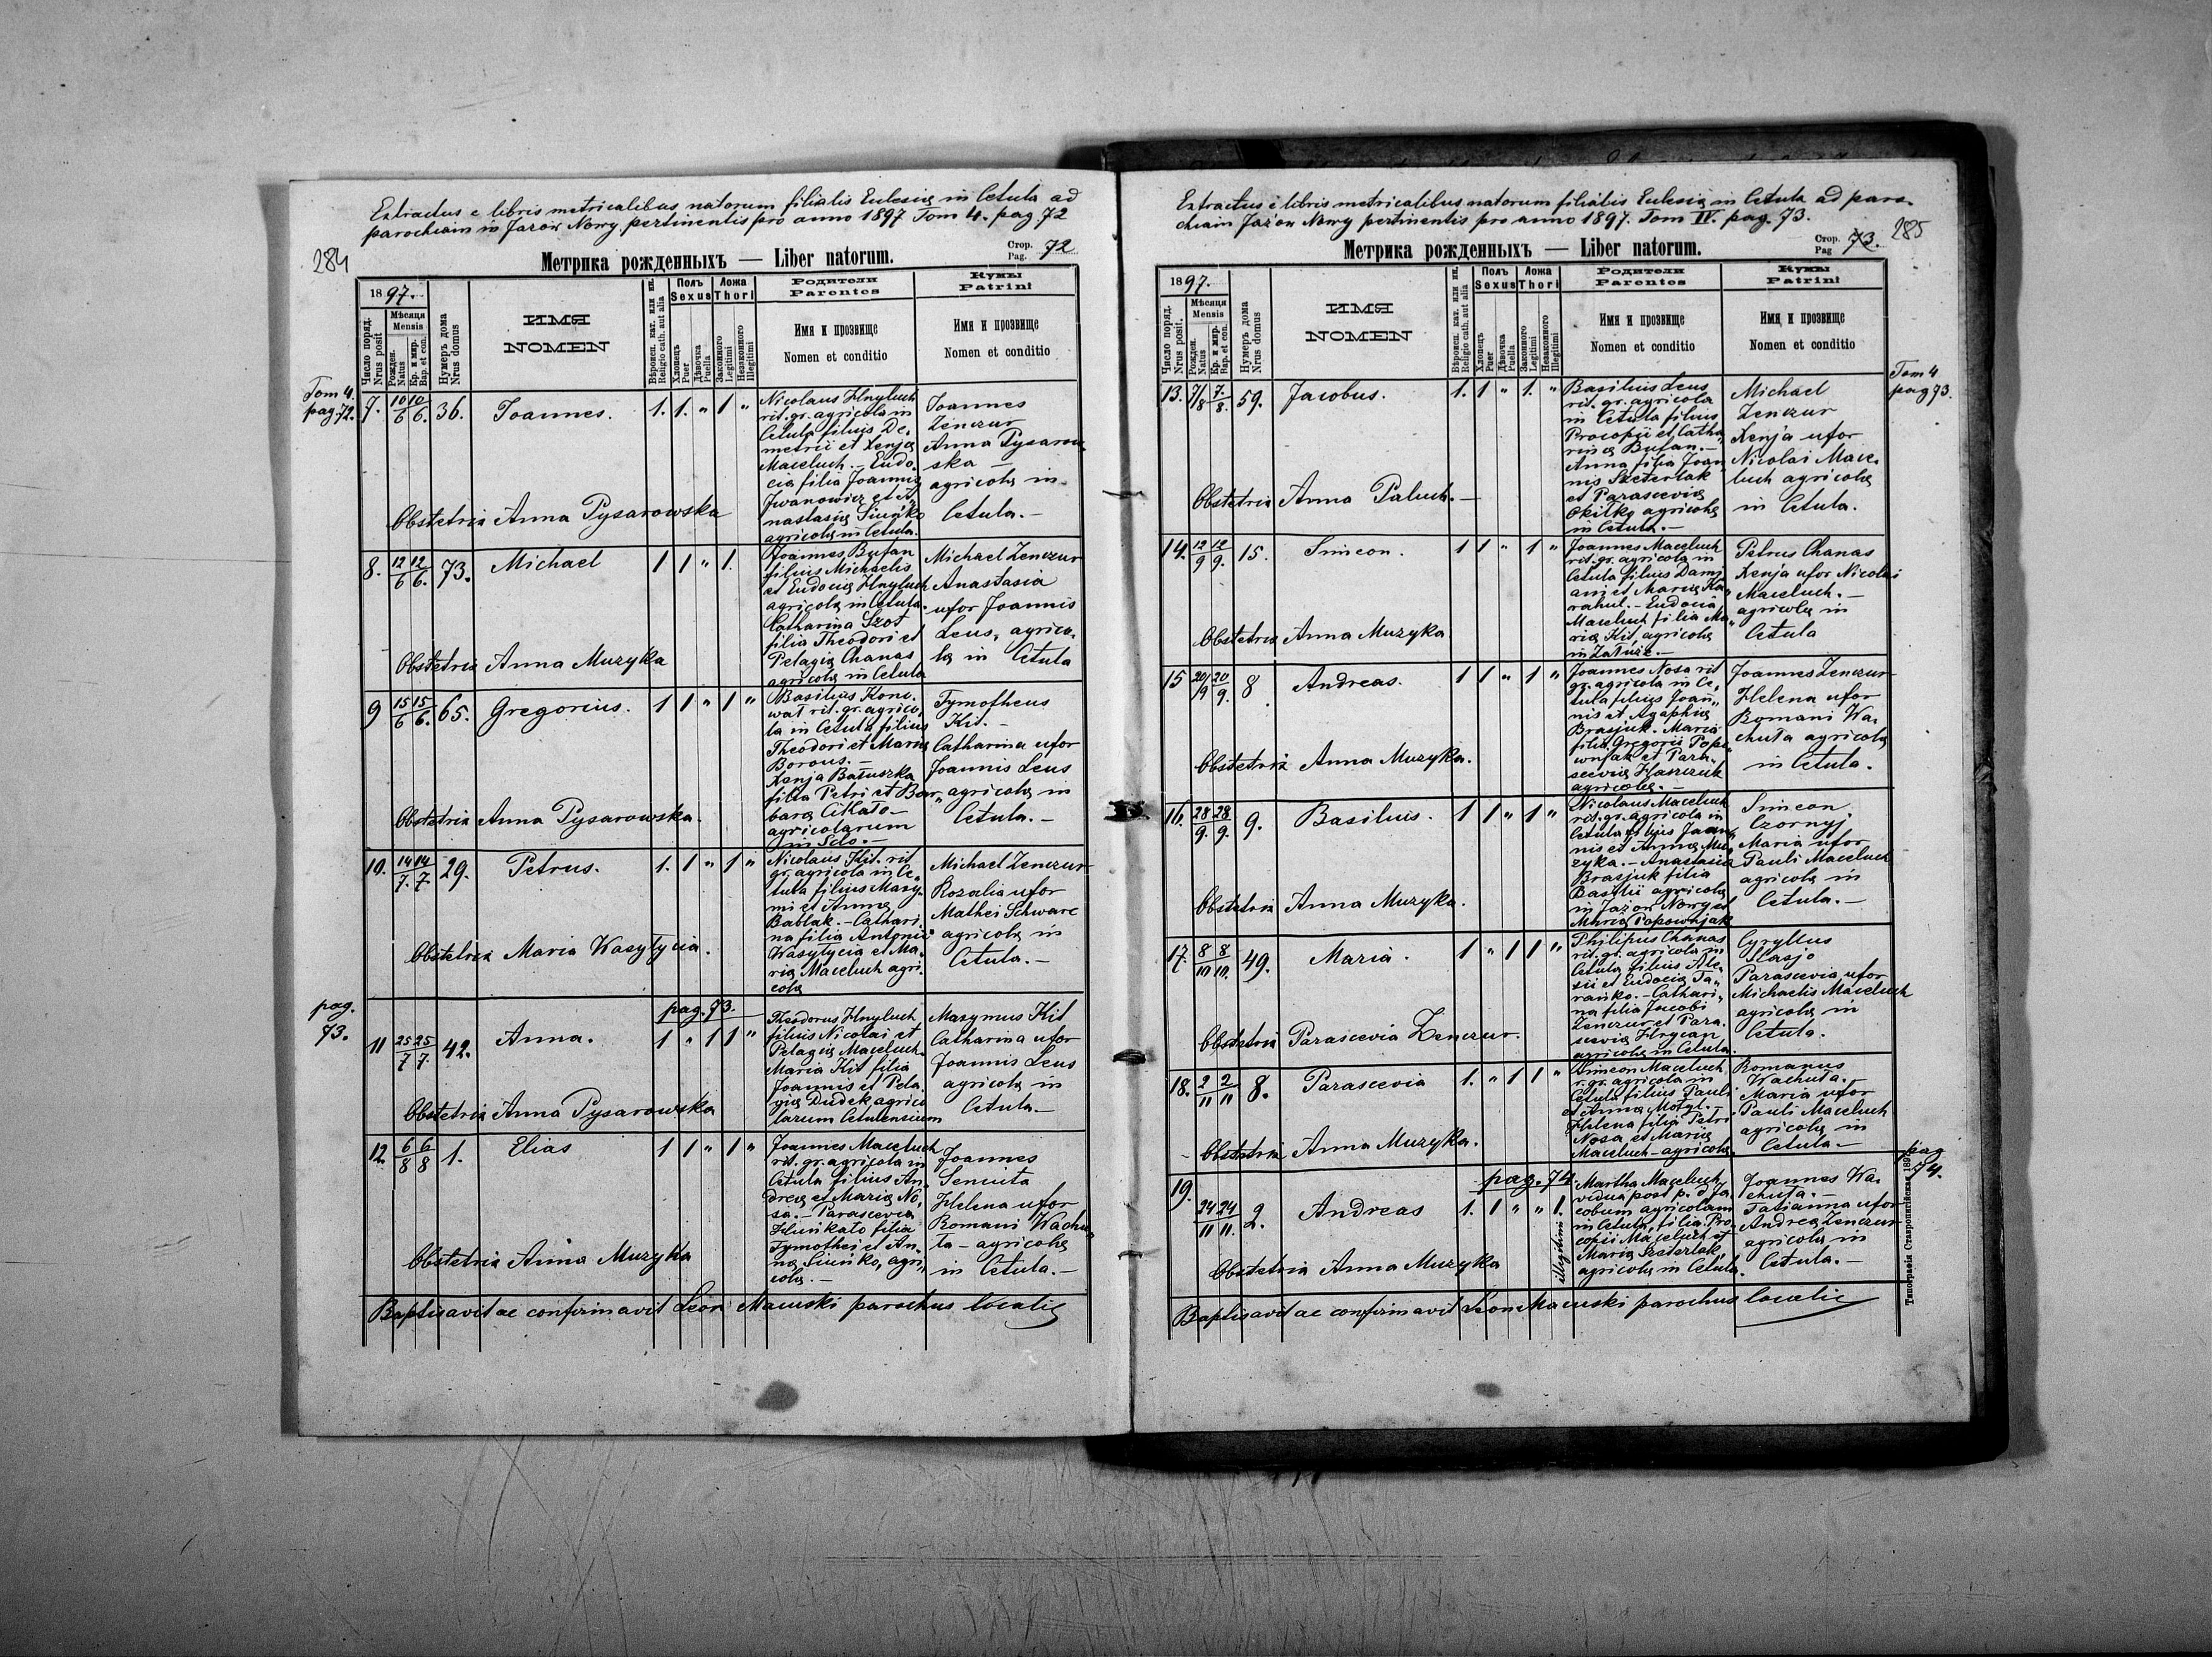 Extractus e libris metricalibus natorum filialis Eclesiæ in Cetula ad
parochiam in Jazów Nowy pertinentis pro anno 1897 Tom 4. pag. 72
284
Метрика рожденныхъ — Liber natorum.
Стор. Pag. 72
1897.
Число поряд. Nrus posit
Мѣсяця Mensis
Рожден. Natus
Кр. и мир. Bap. et con.
Нумеръ дома Nrus domus
ИМЯ
NOMEN
Вѣроисп. кат. или ин. Religio cath. aut alia
Полъ Sexus
Хлопець Puer
Дѣвочка Puella
Ложа Thori
Законного Legitimi
Незаконного Illegitimi
Родители
Parentes
Имя и прозвище
Nomen et conditio
Кумы
Patrini
Имя и прозвище
Nomen et conditio
Tom 4.
pag 72.
7. 10/6 10/6. 36. Joannes. 1. 1. " 1 "
Nicolaus Hnyluch
rit. gr. agricola in
Cetula filius De-
metrii et Xenjæ
Maceluch. – Eudo-
cia filia Joannis
Iwanowicz et A-
nastasiæ Siuńko
agricolæ in Cetula.
Joannes
Zenczur
Anna Pysarow-
ska –
agricolæ in
Cetula. –
Obstetrix Anna Pysarowska
8. 12/6 12/6. 73. Michael 1 1 " 1.
Joannes Bufan
filius Michaelis
et Eudociæ Hnyluch
agricola in Cetula.
Catharina Szot
filia Theodori et
Pelagiæ Chanas
agricolæ in Cetula
Michael Zenczur
Anastasia
uxor Joannis
Leus, agrico-
læ in Cetula
Obstetrix Anna Muzyka
9 15/6 15/6. 65. Gregorius. 1 1 " 1 "
Basilius Kono-
wał rit. gr. agrico-
la in Cetula filius
Theodori et Mariæ
Borous. –
Xenja Batuszka
filia Petri et Bar-
baræ Cikało –
agricolarum
in Sclo. –
Tymotheus
Kit. –
Catharina uxor
Joannis Leus
agricolæ in
Cetula. –
Obstetrix Anna Pysarowska.
10. 14/7. 14/7 29. Petrus. 1. 1 " 1 "
Nicolaus Kit. rit
gr. agricola in Ce-
tula filius Maxy-
mi et Annæ
Bablak. – Cathari-
na filia Antonii
Wasylycia et Ma-
riæ Maceluch agri-
colæ
Michael Zenczur
Rozalia uxor
Mathei Schwarc
agricolæ in
Cetula. –
Obstetrix Maria Wasylycia.
pag.
73.
pag. 73.
11 25/7 25/7. 42. Anna. 1 " 1 1 "
Theodorus Hnyluch
filius Nicolai et
Pelagiæ Maceluch.
Maria Kit filia
Joannis et Pela-
giæ Dudek agrico-
larum Cetulensium
Maxymus Kit
Catharina uxor
Joannis Leus
agricolæ in
Cetula –
Obstetrix Anna Pysarowska
12. 6/8 6/8 1. Elias 1 1 " 1 "
Joannes Maceluch
rit. gr. agricola in
Cetula filius An-
dreæ et Mariæ No-
sa. – Parascevia
Huńkało filia
Tymothei et An-
næ Siuńko, agri-
colæ. –
Joannes
Seniuta
Helena uxor
Romani Wachu-
ta – agricolæ
in Cetula. –
Obstetrix Anna Muzyka
Baptisavit ac confirmavit Leon Macuski parochus localis
Extractus e libris metricalibus natorum filialis Eclesiæ in Cetula ad paro-
chiam Jazów Nowy pertinentis pro anno 1897. Tom IV. pag. 73.
285
Метрика рожденныхъ — Liber natorum.
Стор. Pag 73.
1897.
Число поряд. Nrus posit.
Мѣсяця Mensis
Рожден. Natus
Кр. и мир. Bap. et con.
Нумеръ дома Nrus domus
ИМЯ
NOMEN
Вѣроисп. кат. или ин. Religio cath. aut alia
Полъ Sexus
Хлопець Puer
Дѣвочка Puella
Ложа Thori
Законного Legitimi
Незаконного Illegitimi
Родители
Parentes
Имя и прозвище
Nomen et conditio
Кумы
Patrini
Имя и прозвище
Nomen et conditio
Tom 4
pag 73.
13. 7/8 7/8. 59. Jacobus. 1. 1 " 1. "
Basilius Leus
rit. gr. agricola
in Cetula filius
Procopii et Catha-
rinæ Bufan. –
Anna filia Joan-
nis Szeterlak
et Parasceviæ
Okilko agricolæ
in Cetula. –
Michael
Zenczur
Xenja uxor
Nicolai Mace-
luch agricolæ
in Cetula.
Obstetrix Anna Paluch. –
14. 12/9 12/9. 15. Simeon. 1 1 " 1 "
Joannes Maceluch
rit. gr. agricola in
Cetula filius Dami-
ani et Mariæ Ka-
rahul. – Eudocia
Maceluch filia Ma-
riæ Kit, agricolæ
in Załuże. –
Petrus Chanas
Xenja uxor Nicolai
Maceluch. –
agricolæ in
Cetula
Obstetrix Anna Muzyka
15 20/9 20/9. 8 Andreas. 1 1 " 1 "
Joannes Nosa rit
gr. agricola in Ce-
tula filius Joan-
nis et Agaphiæ
Brasjuk. Maria
filia Gregorii Popo-
wnjak et Para-
sceviæ Haszczuk
agricolæ. –
Joannes Zenczur
Helena uxor
Romani Wa-
chuta agricolæ
in Cetula.
Obstetrix Anna Muzyka.
16. 28/9. 28/9. 9. Basilius. 1 1 " 1 "
Nicolaus Maceluch
rit. gr. agricola in
Cetula filius Joan-
nis et Annæ Mu-
zyka. – Anastasia
Brasjuk filia
Basilii agricolæ
in Jazow Nowy et
Mariæ Popownjak
Simeon
Czornyj.
Maria uxor
Pauli Maceluch
agricolæ in
Cetula. –
Obstetrix Anna Muzyka.
17. 8/10 8/10. 49. Maria. 1 " 1 1 "
Philipus Chanas
rit. gr. agricola in
Cetula filius Ale-
xii et Eudociæ Ta-
rańko. – Cathari-
na filia Jacobi
Zenczur et Para-
sceviæ Hrycan
agricolæ in Cetula.
Cyryllus
Ilasjo
Parascevia uxor
Michaelis Maceluch
agricolæ in
Cetula.
Obstetrix Parascevia Zenczur.
18. 2/11 2/11 8. Parascevia 1. " 1 1 "
Simeon Maceluch
r. gr. agricola in
Cetula filius Pauli
et Annæ Motyl. –
Helena filia Petri
Nosa et Mariæ
Maceluch – agricolæ.
Romanus
Wachuta. –
Maria uxor
Pauli Maceluch
agricolæ in
Cetula –
Obstetrix Anna Muzyka.
pag
74.
pag. 74.
19. 24/11 24/11. 2. Andreas 1. 1 " " 1.
illegitimi
Martha Maceluch
vidua post p. d. Ja-
cobum agricolam
in Cetula, filia Pro-
copii Maceluch et
Mariæ Szeterlak,
agricolæ in Cetula.
Joannes Wa-
chuta. –
Tatianna uxor
Andreæ Zenczur
agricolæ in
Cetula. –
Obstetrix Anna Muzyka
Baptisavit ac confirmavit Leon Macuski parochus localis